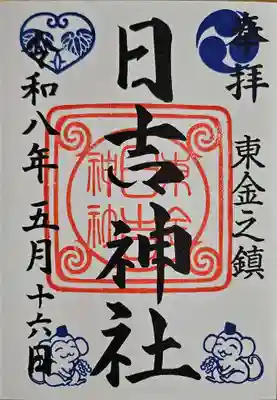 奉拝
東金之鎮
日吉神社
東金
日吉
神社
令和八年五月十六日